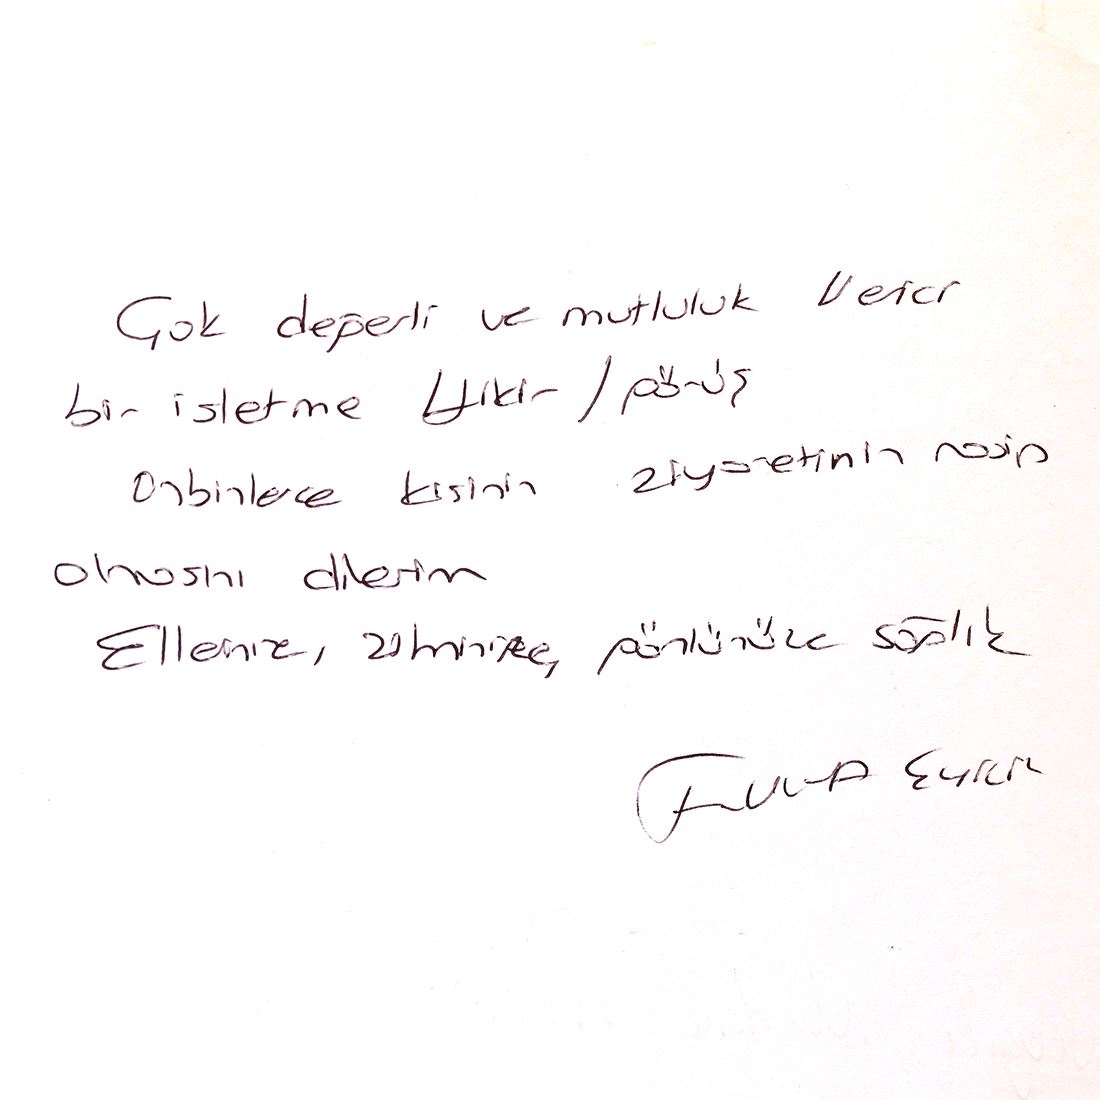 Çok değerli ve mutluluk verici
bir işletme fikir / görüş
Onbinlerce kişinin ziyaretinin nasip
olmasını dilerim
Ellerinize, zihninize, gönlünüze sağlık